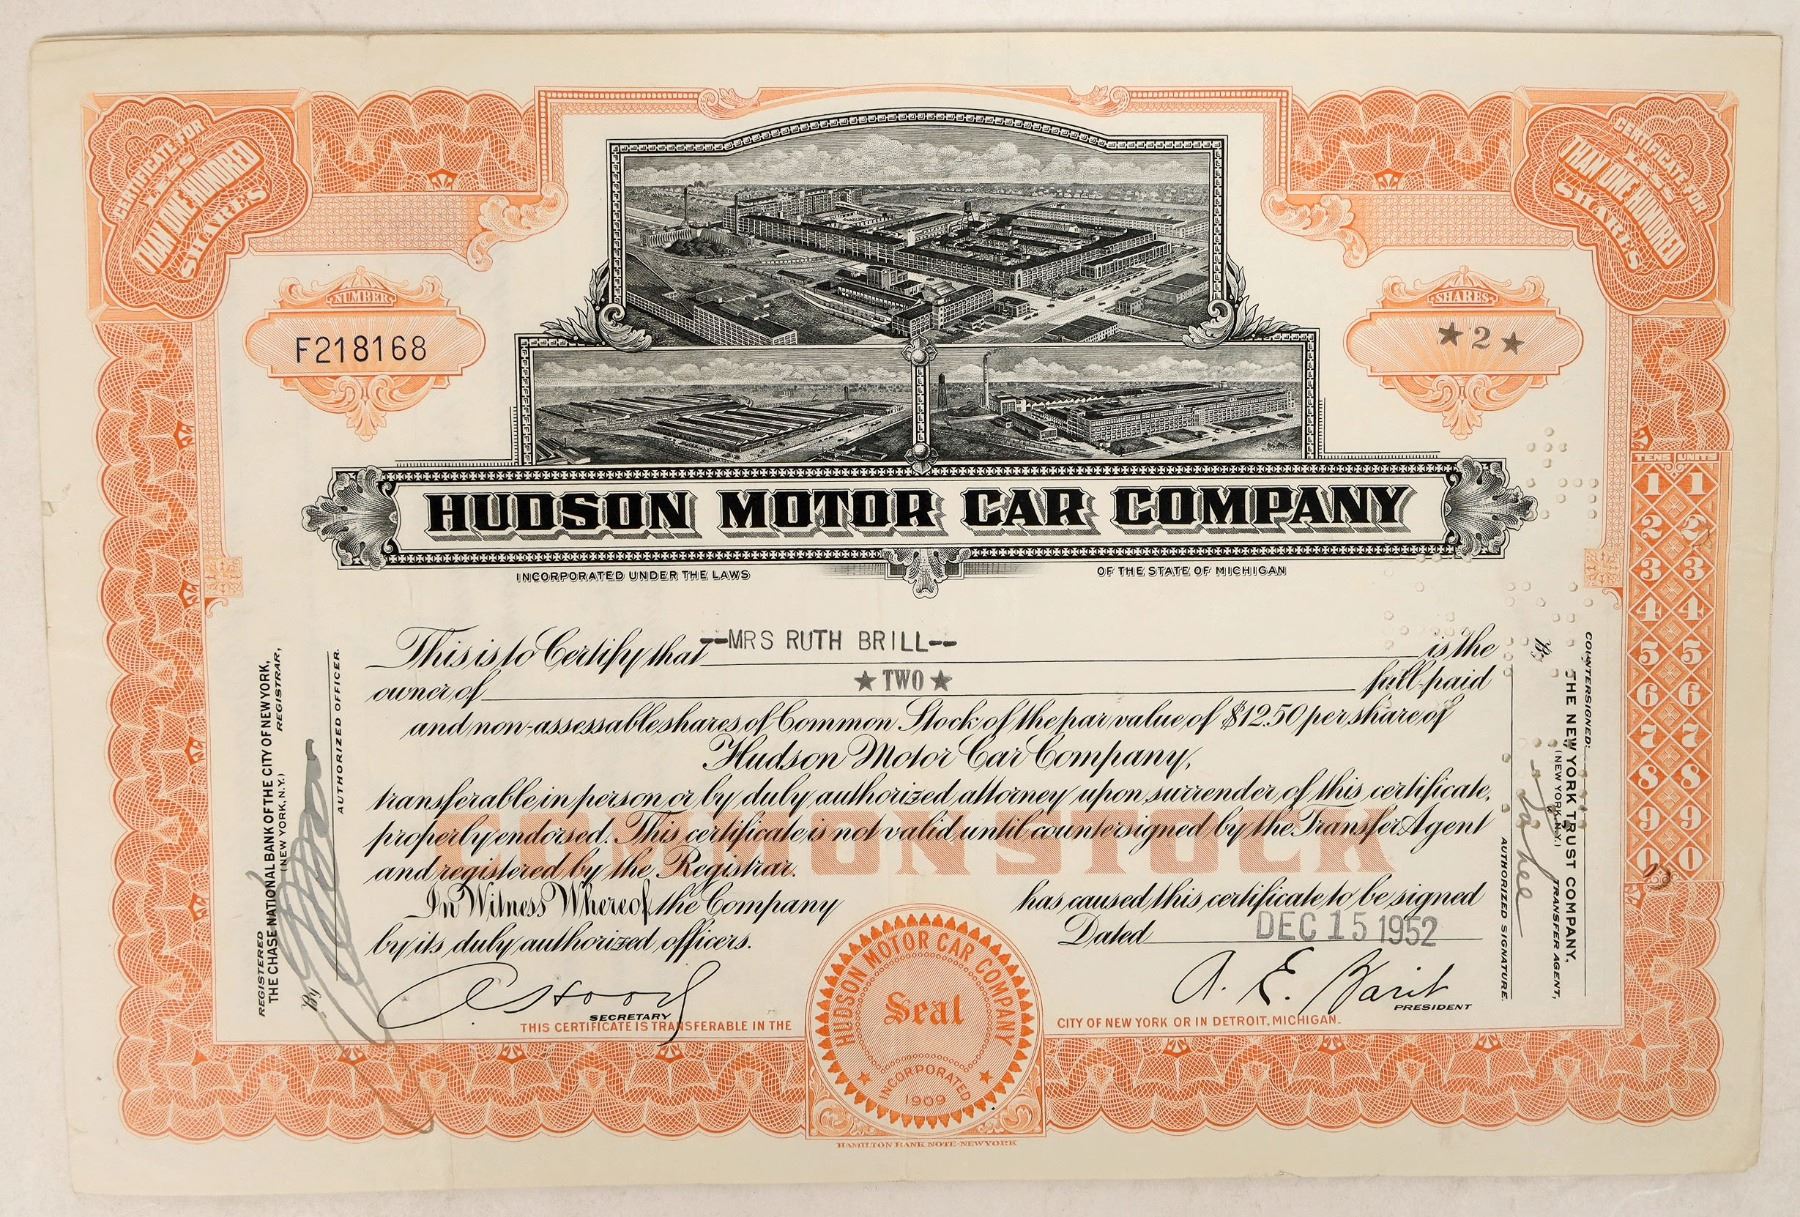 CERTIFICATE FOR
LESS
THAN ONE HUNDRED
SHARES
CERTIFICATE FOR
LESS
THAN ONE HUNDRED
SHARES
NUMBER
F218168
SHARES
★2★
HUDSON MOTOR CAR COMPANY
INCORPORATED UNDER THE LAWS OF THE STATE OF MICHIGAN
This is to Certify that --MRS RUTH BRILL-- is the
owner of ★ TWO ★ full-paid
and non-assessable shares of Common Stock of the par value of $12.50 per share of
Hudson Motor Car Company,
transferable in person or by duly authorized attorney upon surrender of this certificate,
properly endorsed. This certificate is not valid until countersigned by the Transfer Agent
and registered by the Registrar.
COMMON STOCK
In Witness Whereof the Company has caused this certificate to be signed
by its duly authorized officers. Dated DEC 15 1952
SECRETARY
A. E. Barit
PRESIDENT
THIS CERTIFICATE IS TRANSFERABLE IN THE CITY OF NEW YORK OR IN DETROIT, MICHIGAN.
HUDSON MOTOR CAR COMPANY
Seal
INCORPORATED
1909
HAMILTON BANK NOTE-NEW YORK
REGISTERED
THE CHASE NATIONAL BANK OF THE CITY OF NEW YORK,
(NEW YORK, N.Y.) REGISTRAR,
By
AUTHORIZED OFFICER.
COUNTERSIGNED:
THE NEW YORK TRUST COMPANY,
(NEW YORK, N.Y.) TRANSFER AGENT,
By
AUTHORIZED SIGNATURE.
TENS UNITS
1 1
2 2
3 3
4 4
5 5
6 6
7 7
8 8
9 9
0 0